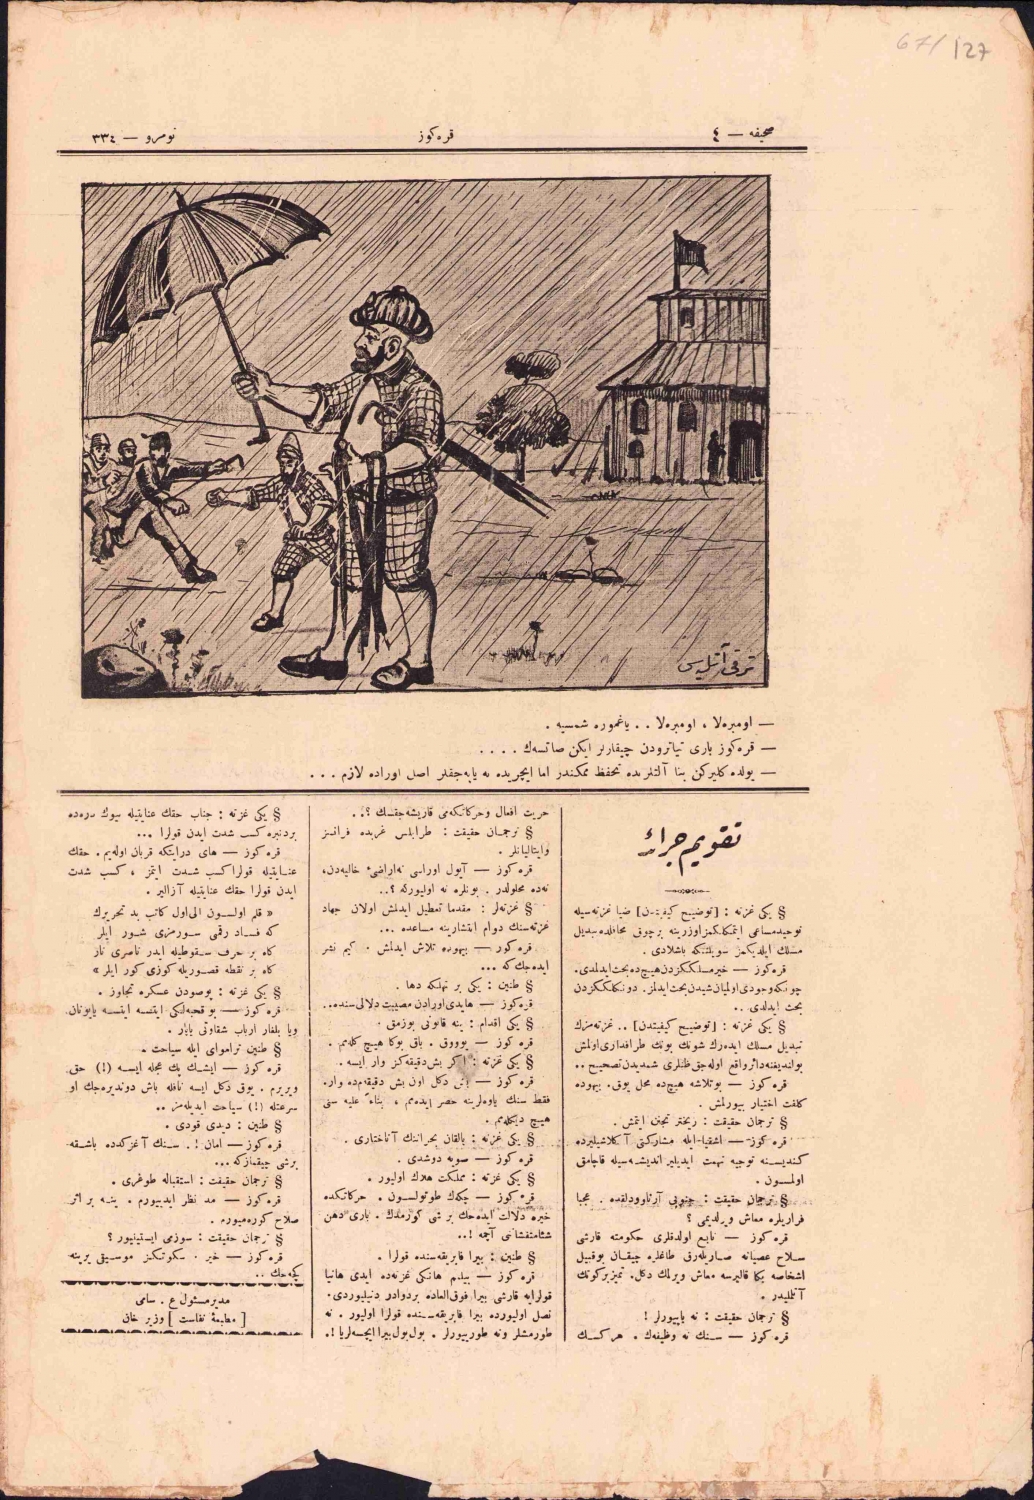 67/ 127
صحيفه — ٤
قره كوز
نومرو — ٣٣٤
ترقى آتليسى
— اومبره‌لا ، اومبره‌لا . . ياغموره شمسيه .
— قره كوز بارى تياترودن چيقارلر ايكن صاتسه‌ك . . . .
— يولده كليركن بنا آلتلرنده تحفظ ممكندر اما ايچريده نه ياپه‌جقلر اصل اوراده لازم . . .
تقويم جرائد
§ يكى غزته : [توضيح كيفيتدن] ضيا غزته‌سيله
توحيد مساعى ايتمكلكمز اوزرينه برچوق محافلده تبديل
مسلك ايلديكمز سويلنمكه باشلادى .
قره كوز — خير مسلككزدن هيچ ده بحث ايدلمدى .
چونكه وجودى اولميان شيدن بحث ايدلمز . دونكلككزدن
بحث ايدلدى ..
§ يكى غزته : [توضيح كيفيتدن] .. غزته‌مزك
تبديل مسلك ايده‌رك شونك بونك طرفدارى اولمش
بولنديغنه دائر واقع اوله‌جق ظنلرى شمديدن تصحيح ..
قره كوز — بوتلاشه هيچ ده محل يوق . بيهوده
كلفت اختيار بيورلمش .
§ ترجمان حقيقت : ريختر تجنن ايتمش .
قره كوز — اشقيا ايله مشاركتى آكلاشيليرده
كنديسنه توجيه تهمت ايديلير انديشه‌سيله قاچامق
اولمسون .
§ ترجمان حقيقت : جنوبى آرناوودلقده . عجبا
فراريلره معاش ويرلديمى ؟
قره كوز — تابع اولدقلرى حكومته قارشى
سلاح عصيانه صاريله‌رق طاغلره چيقان بوقبيل
اشخاصه يكا قاليرسه معاش ويرلمك دكل . تميز بركوتك
آتلميدر .
§ ترجمان حقيقت : نه ياپيورلر !
قره كوز — سنك نه وظيفه‌ك . هركسك
حريت افعال و حركاتنه‌مى قاريشه‌جقسك ؟..
§ ترجمان حقيقت : طرابلس غربده فرانسز
وايتاليانلر .
قره كوز — آيول اوراسى نه اراضئ خاليه‌دن ،
نه‌ده محلولدر . بونلره نه اوليوركه ؟..
§ غزته‌لر : مقدما تعطيل ايدلمش اولان جهاد
غزته‌سنك دوام انتشارينه مساعده ...
قره كوز — بيهوده تلاش ايدلمش . كيم نشر
ايده‌جك كه ...
§ طنين : يكى بر تهلكه دها .
قره كوز — هايدى اورادن مصيبت دلالى سنده..
§ يكى اقدام : ينه قانونى بوزمق .
قره كوز — يوووق . باق بوكا هيچ كله‌مم .
§ يكى غزته : اكر بش دقيقه كز وار ايسه .
قره كوز — بش دكل اون بش دقيقه‌م ده وار .
فقط سنك ياوه‌لرينه حصر ايده‌مم ، بناءً عليه سنى
هيچ ديكله‌مم .
§ يكى غزته : بالقان بحراننك آناختارى .
قره كوز — صويه دوشدى .
§ يكى غزته : مملكت هلاك اوليور .
قره كوز — چكه‌ك طوتولسون . حركاتكده
خيره دلالت ايده‌جك بر شى كورمدك . بارى دهن
شئامتفشانى آچمه !..
§ طنين : بيرا فابريقه‌سنده قولرا .
قره كوز — بيلم هانكى غزته‌ده ايدى هانيا
قولرايه قارشى بيرا فوق العاده بردوادر دنيليوردى .
نصل اوليورده بيرا فابريقه‌سنده قولرا اوليور . نه
طورمشلر ونه طوريورلر . بول بول بيرا ايچسه‌لريا !.
§ يكى غزته : جناب حقك عنايتيله سيوك
بردنبره كسب شدت ايدن قولرا ...
قره كوز — هاى درايتكه قربان اوله‌يم . حقك
عنايتيله قولرا كسب شدت ايتمز ، كسب شدت
ايدن قولرا حقك عنايتيله آزالير .
« قلم اولسون الى اول كاتب بد تحريرك
كه فساد رقمى سورمزى شور ايلر
كاه بر حرف سقوطيله ايدر ناصرى نار
كاه بر نقطه قصوريله كوزى كور ايلر »
§ يكى غزته : يوصودن عسكره تجاوز .
قره كوز — بو قحبه‌لكى ايتسه ايتسه يابونان
ويا بلغار ارباب شقاوتى ياپار .
§ طنين تراموآى ايله سياحت .
قره كوز — ايشك يك عجله ايسه (!) حق
ويررم . يوق دكل ايسه نافله باش دوندير‌ه‌جك او
سرعتله (!) سياحت ايديله‌مز ..
§ طنين : ديدى قودى .
قره كوز — امان ! . سنك آغزكدن باشقه
برشى چيقمازكه ...
§ ترجمان حقيقت : استقباله طوغرى .
قره كوز — مد نظر ايدييورم . ينه بر اثر
صلاح كوره‌ميورم .
§ ترجمان حقيقت : سوزمى ايستنييور ؟
قره كوز — خير . سكوتكز موسيقى يرينه
كچه‌جك ..
مدير مسئول ع . سامى
[ مطبعهٔ نفاست ] وزير خان